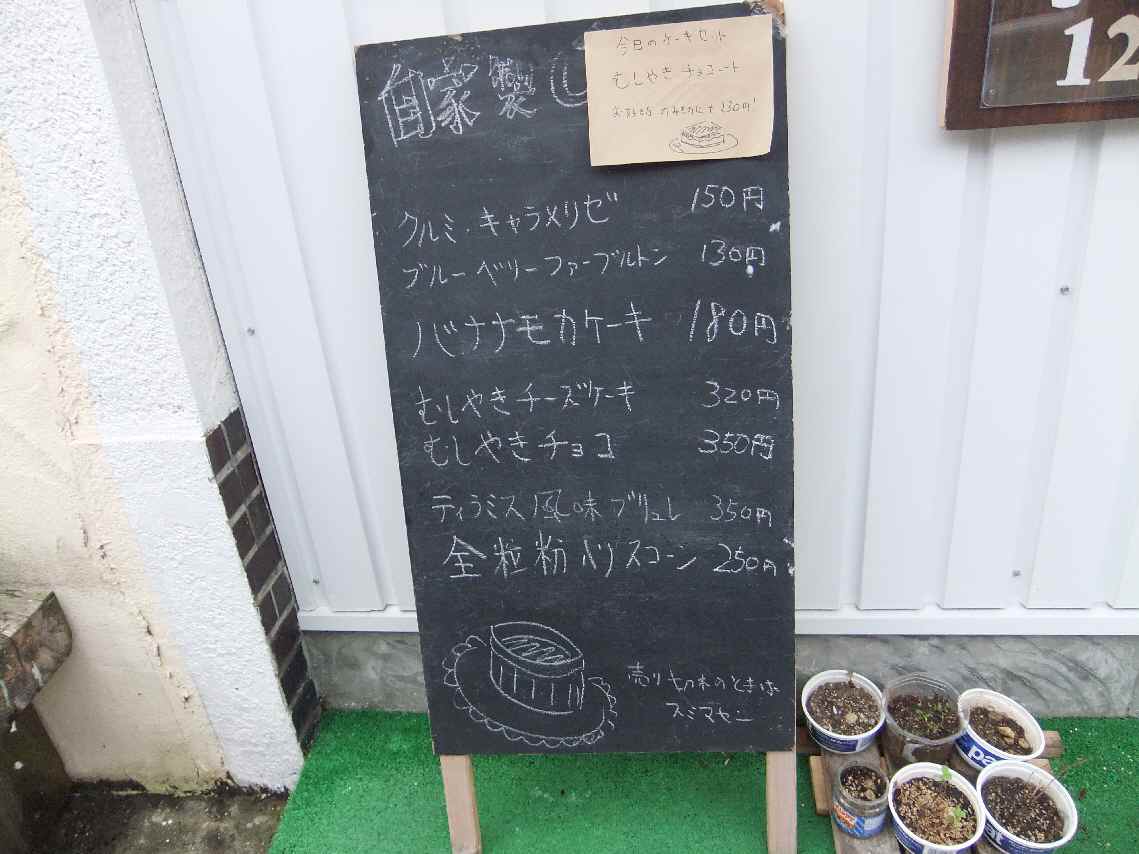 今日のケーキセット
むしやき チョコート
お好きな のみものに+230円
自家製し
クルミ・キャラメリゼ 150円
ブルーベリーファーブルトン 130円
バナナモカケーキ 180円
むしやきチーズケーキ 320円
むしやきチョコ 350円
ティラミス風味ブリュレ 350円
全粒粉入リスコーン 250円
売り切れのときは
スミマセン
12
pa